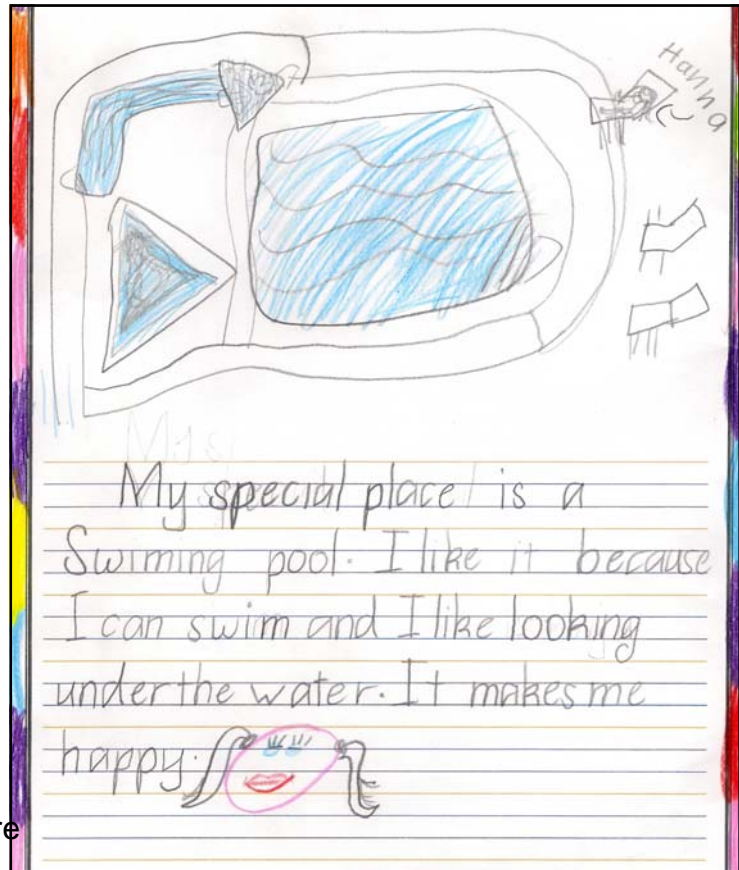 Hanna
My s
My special place is a
Swiming pool. I like it because
I can swim and I like looking
under the water. It makes me
happy.
re